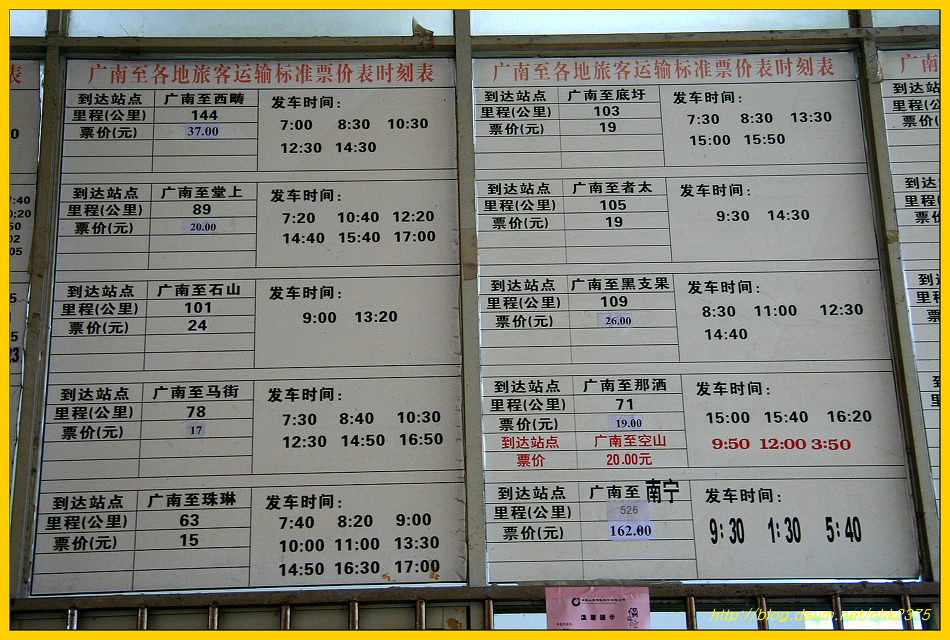 广南至各地旅客运输标准票价表时刻表
到达站点 广南至西畴 发车时间:
里程(公里) 144
票价(元) 37.00
7:00 8:30 10:30
12:30 14:30
到达站点 广南至堂上 发车时间:
里程(公里) 89
票价(元) 20.00
7:20 10:40 12:20
14:40 15:40 17:00
到达站点 广南至石山 发车时间:
里程(公里) 101
票价(元) 24
9:00 13:20
到达站点 广南至马街 发车时间:
里程(公里) 78
票价(元) 17
7:30 8:40 10:30
12:30 14:50 16:50
到达站点 广南至珠琳 发车时间:
里程(公里) 63
票价(元) 15
7:40 8:20 9:00
10:00 11:00 13:30
14:50 16:30 17:00
广南至各地旅客运输标准票价表时刻表
到达站点 广南至底圩 发车时间:
里程(公里) 103
票价(元) 19
7:30 8:30 13:30
15:00 15:50
到达站点 广南至者太 发车时间:
里程(公里) 105
票价(元) 19
9:30 14:30
到达站点 广南至黑支果 发车时间:
里程(公里) 109
票价(元) 26.00
8:30 11:00 12:30
14:40
到达站点 广南至那洒 发车时间:
里程(公里) 71
票价(元) 19.00
15:00 15:40 16:20
到达站点 广南至空山
票价 20.00元
9:50 12:00 3:50
到达站点 广南至南宁 发车时间:
里程(公里) 526
票价(元) 162.00
9:30 1:30 5:40
温馨提示